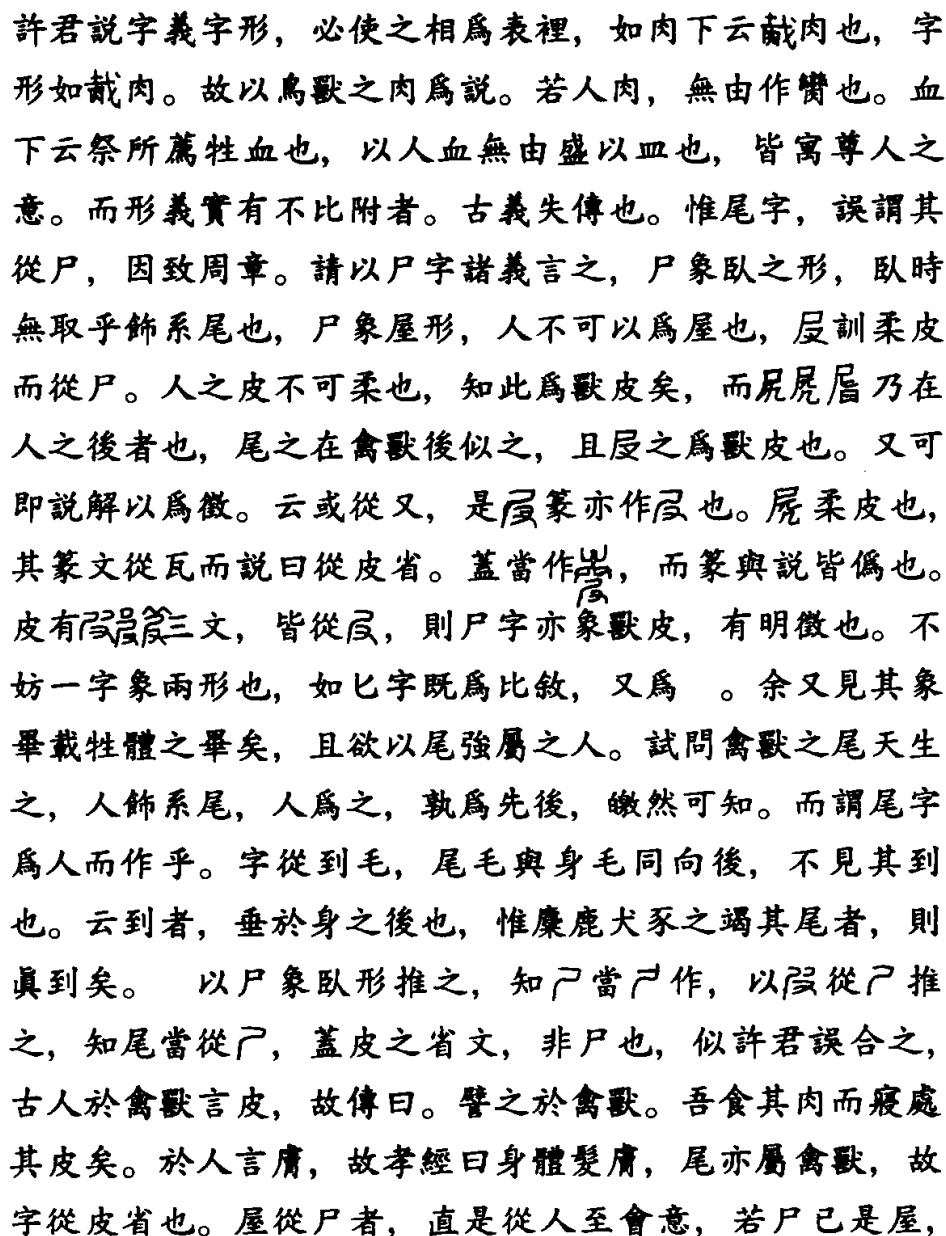 許君説字義字形，必使之相爲表裡，如肉下云胾肉也，字
形如胾肉。故以鳥獸之肉爲説。若人肉，無由作臠也。血
下云祭所薦牲血也，以人血無由盛以皿也，皆寓尊人之
意。而形義實有不比附者。古義失傳也。惟尾字，誤謂其
從尸，因致周章。請以尸字諸義言之，尸象臥之形，臥時
無取乎飾系尾也，尸象屋形，人不可以爲屋也，𠬝訓柔皮
而從尸。人之皮不可柔也，知此爲獸皮矣，而尻乃在
人之後者也，尾之在禽獸後似之，且𠬝之爲獸皮也。又可
即説解以爲徵。云或從又，是篆亦作也。柔皮也，
其篆文從瓦而説曰從皮省。蓋當作，而篆與説皆僞也。
皮有三文，皆從，則尸字亦象獸皮，有明徵也。不
妨一字象兩形也，如匕字既爲比敘，又爲　。余又見其象
畢載牲體之畢矣，且欲以尾強屬之人。試問禽獸之尾天生
之，人飾系尾，人爲之，孰爲先後，皦然可知。而謂尾字
爲人而作乎。字從到毛，尾毛與身毛同向後，不見其到
也。云到者，垂於身之後也，惟麋鹿犬豕之竭其尾者，則
眞到矣。　以尸象臥形推之，知當作，以從推
之，知尾當從，蓋皮之省文，非尸也，似許君誤合之，
古人於禽獸言皮，故傳曰。譬之於禽獸。吾食其肉而寢處
其皮矣。於人言膚，故孝經曰身體髮膚，尾亦屬禽獸，故
字從皮省也。屋從尸者，直是從人至會意，若尸已是屋，